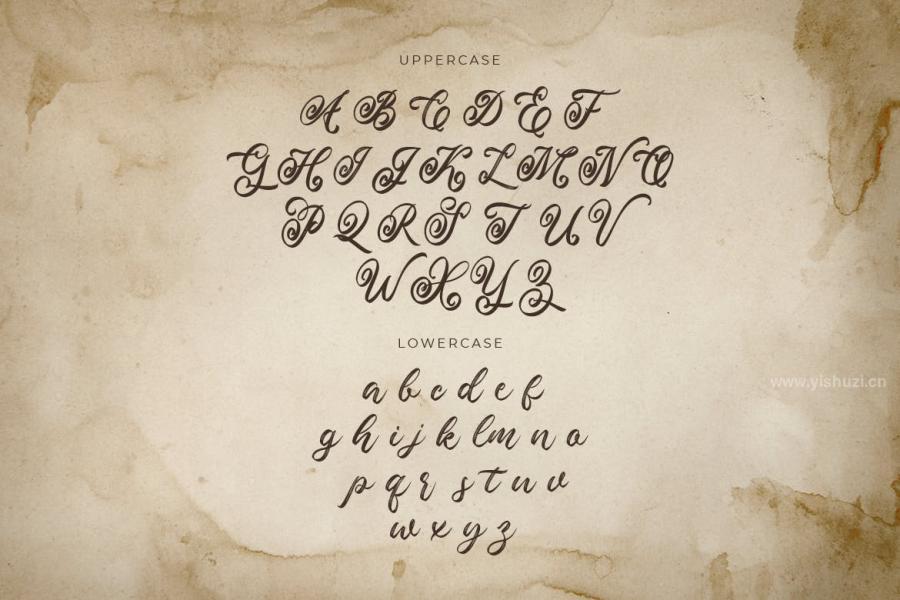 UPPERCASE
A B C D E F
G H I J K L M N O
P Q R S T U V
W X Y Z
LOWERCASE
a b c d e f
g h i j k l m n o
p q r s t u v
w x y z
www.yishuzi.cn